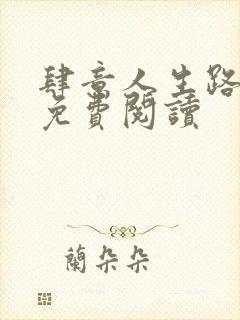 肆意人生路
免費閱讀
蘭朵朵